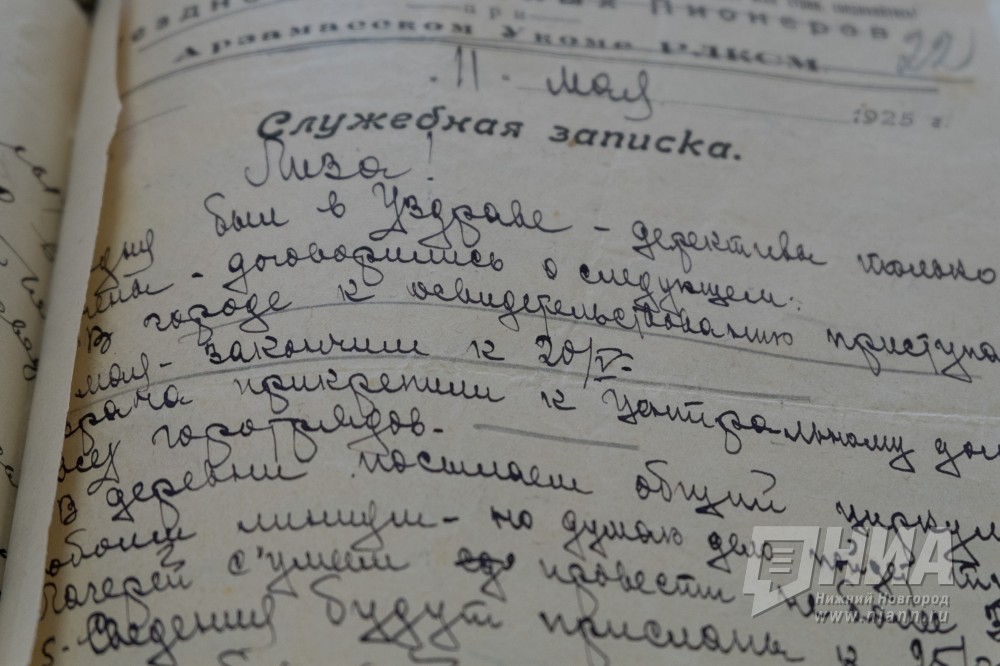 ых Пионеров
при
Арзамасском Укоме РЛКСМ. 22
11 мая 1925 г.
Служебная записка.
Лиза!
был в Уздраве - дерективы только
- договорились о следующем:
В городе к освидетельствованию приступа
мая - закончим к 20/V.
врача прикрепили к Центральному
горотрядов.
В деревни посылаем общий циркуля
- но думаю дело пойдет
с'умеет провести
5. Сведения будут присланы к 25/
НИА
Нижний Новгород
www.niann.ru